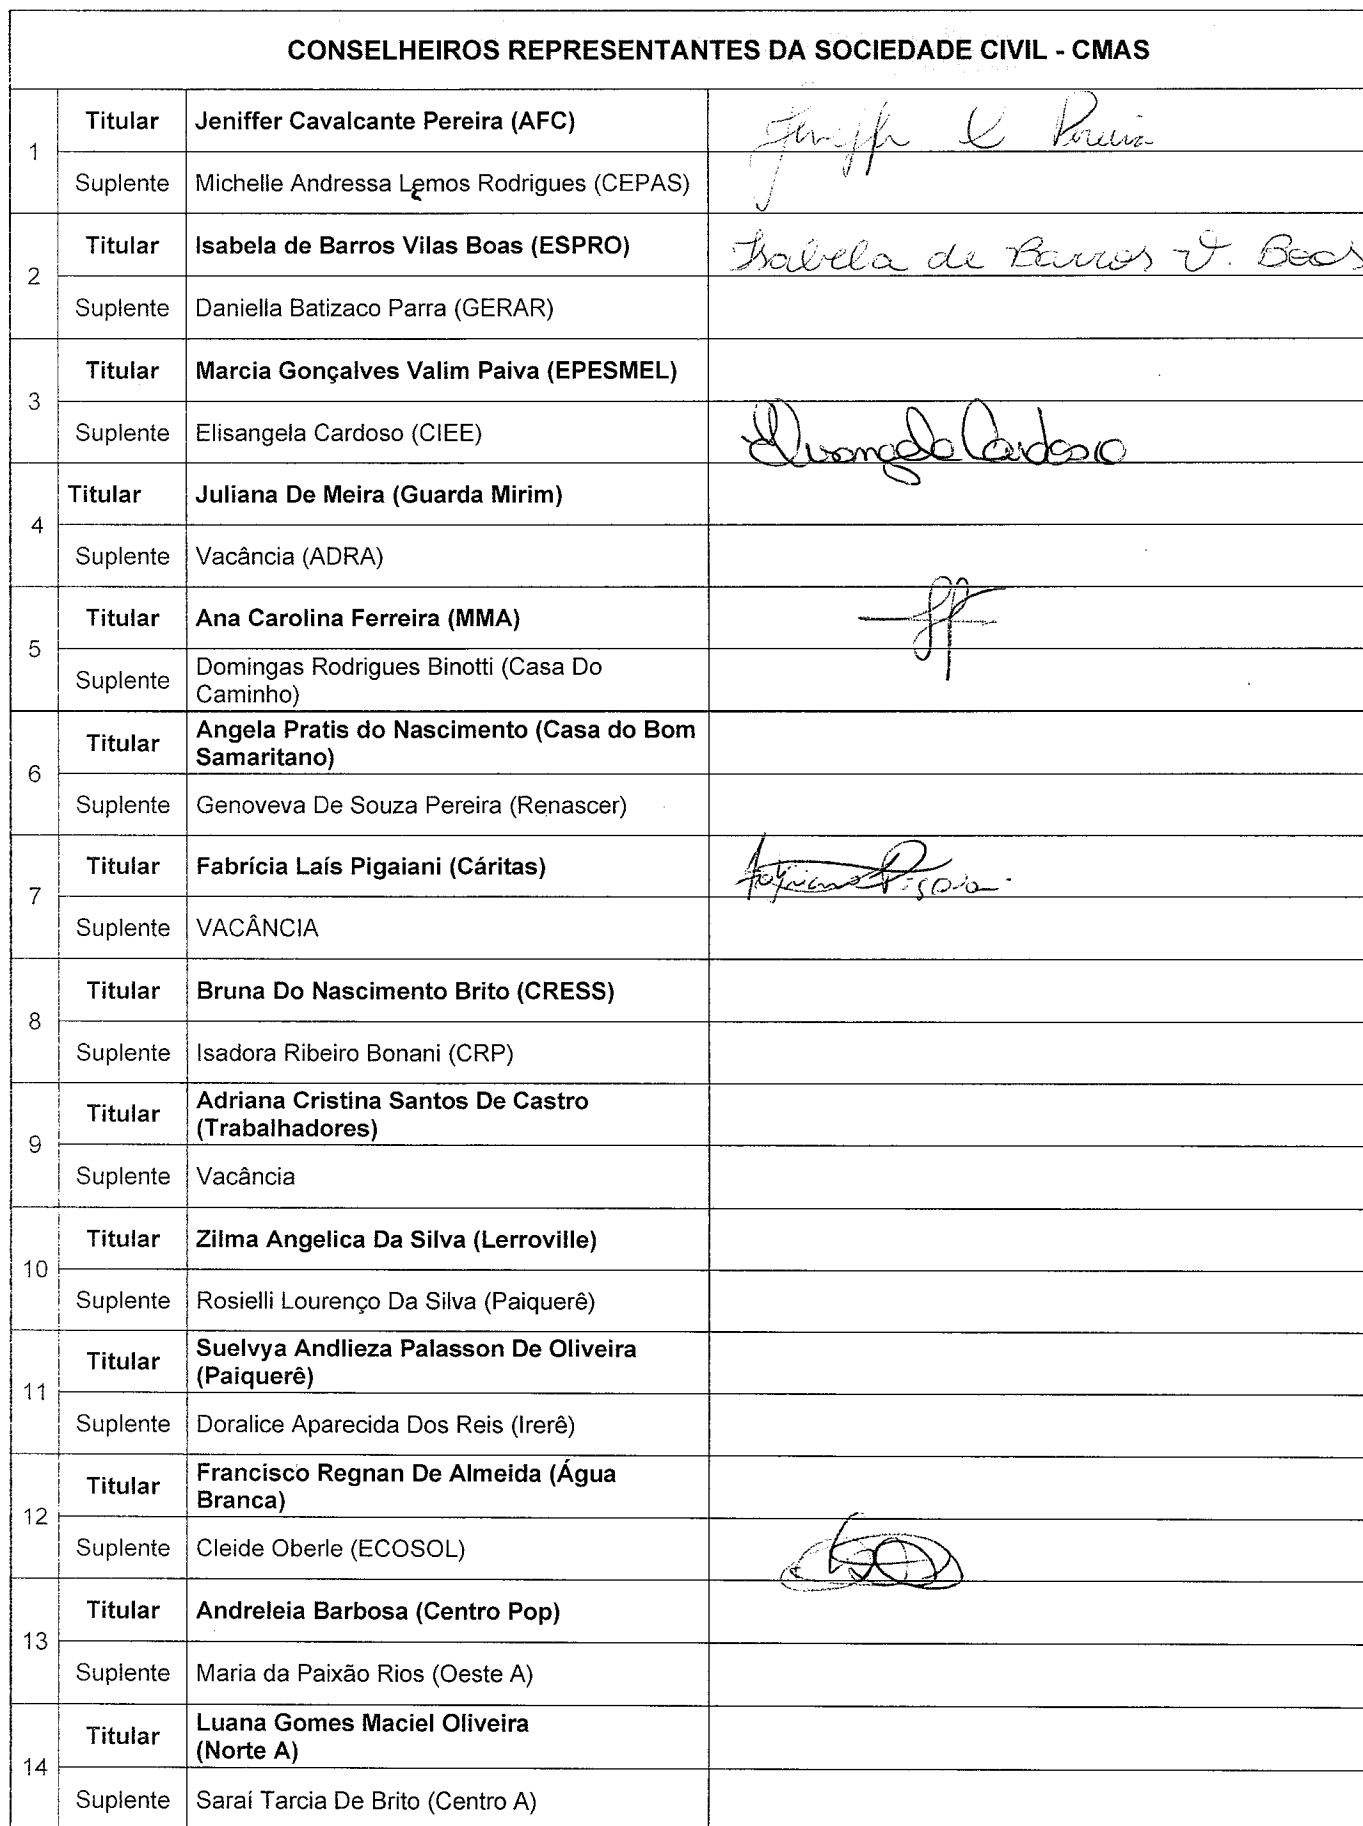 CONSELHEIROS REPRESENTANTES DA SOCIEDADE CIVIL - CMAS
1
Titular Jeniffer Cavalcante Pereira (AFC) C Pereira
Suplente Michelle Andressa Lemos Rodrigues (CEPAS)
2
Titular Isabela de Barros Vilas Boas (ESPRO) Isabela de Barros V. Boas
Suplente Daniella Batizaco Parra (GERAR)
3
Titular Marcia Gonçalves Valim Paiva (EPESMEL)
Suplente Elisangela Cardoso (CIEE) Elisangela Cardoso
4
Titular Juliana De Meira (Guarda Mirim)
Suplente Vacância (ADRA)
5
Titular Ana Carolina Ferreira (MMA)
Suplente Domingas Rodrigues Binotti (Casa Do
Caminho)
6
Titular Angela Pratis do Nascimento (Casa do Bom
Samaritano)
Suplente Genoveva De Souza Pereira (Renascer)
7
Titular Fabrícia Laís Pigaiani (Cáritas)
Suplente VACÂNCIA
8
Titular Bruna Do Nascimento Brito (CRESS)
Suplente Isadora Ribeiro Bonani (CRP)
9
Titular Adriana Cristina Santos De Castro
(Trabalhadores)
Suplente Vacância
10
Titular Zilma Angelica Da Silva (Lerroville)
Suplente Rosielli Lourenço Da Silva (Paiquerê)
11
Titular Suelvya Andlieza Palasson De Oliveira
(Paiquerê)
Suplente Doralice Aparecida Dos Reis (Irerê)
12
Titular Francisco Regnan De Almeida (Água
Branca)
Suplente Cleide Oberle (ECOSOL)
13
Titular Andreleia Barbosa (Centro Pop)
Suplente Maria da Paixão Rios (Oeste A)
14
Titular Luana Gomes Maciel Oliveira
(Norte A)
Suplente Saraí Tarcia De Brito (Centro A)